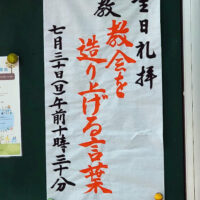 聖日礼拝
教
教会を
造り上げる言葉
七月三十日(日)午前十時三十分